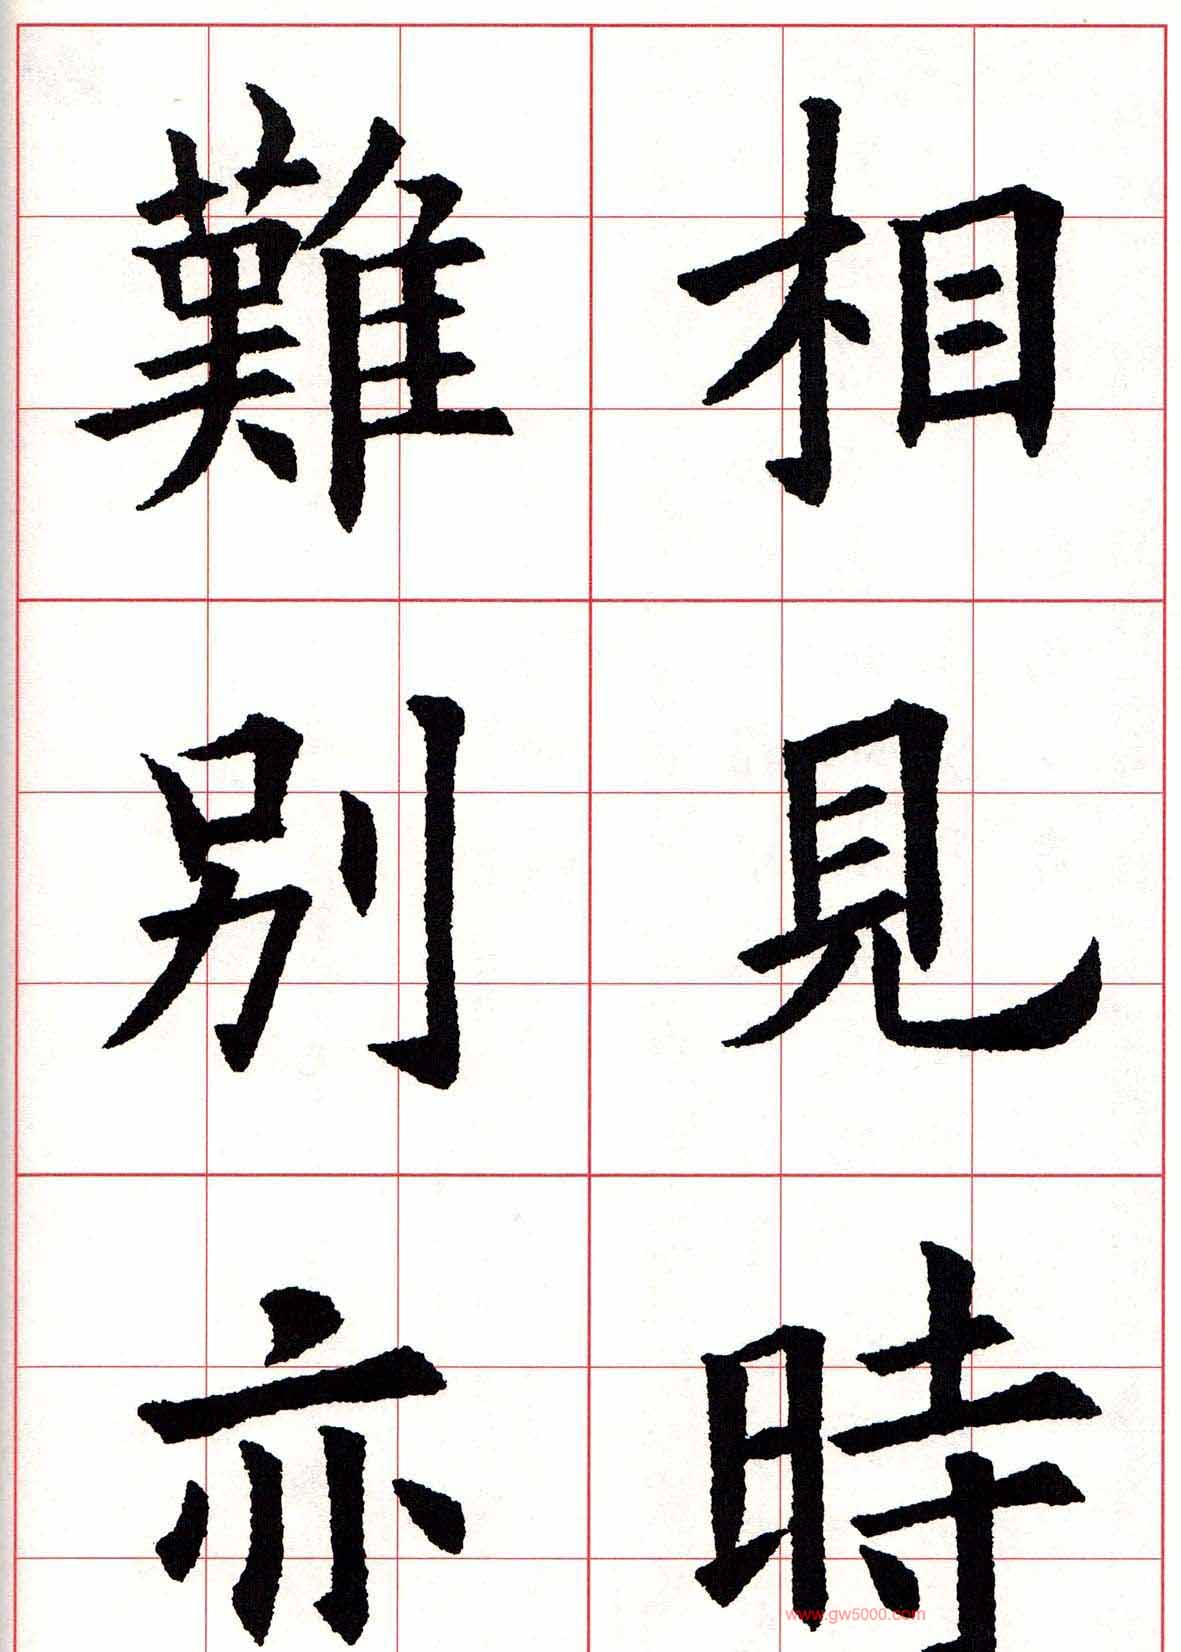 相見時
難別亦
www.gw5000.com